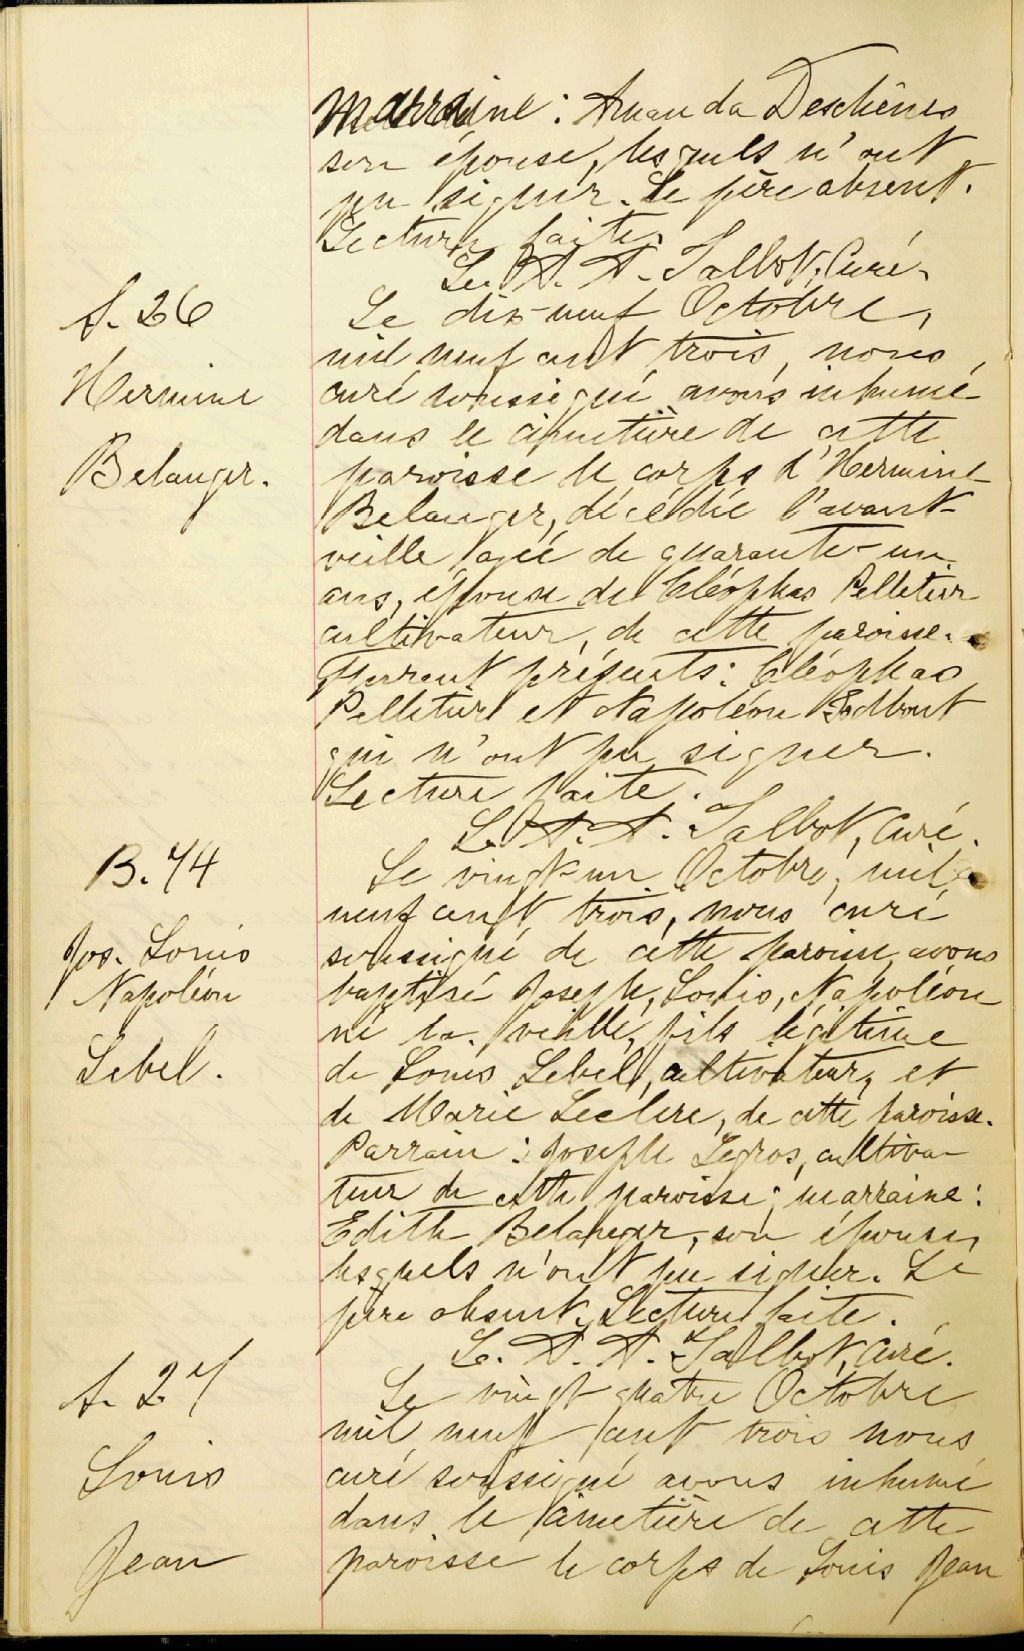 Marraine : Amanda Deschênes
son épouse, lesquels n'ont
pu signer. Le père absent.
Lecture faite.
Ls. A. A. Talbot, Curé.
S. 26
Hermine
Belanger.
Le dix-neuf Octobre,
mil neuf cent trois, nous,
curé soussigné avons inhumé
dans le cimetière de cette
paroisse le corps d'Hermine
Belanger, décédée l'avant-
veille agée de quarante-un
ans, épouse de Cléophas Pelletier
cultivateur, de cette paroisse.
Furent présents : Cléophas
Pelletier et Napoléon
qui n'ont pu signer.
Lecture faite.
Ls. A. A. Talbot, Curé.
B. 74
Jos. Louis
Napoléon
Lebel.
Le vingt-un Octobre, mil
neuf cent trois, nous curé
soussigné de cette paroisse, avons
baptisé Joseph, Louis, Napoléon
né la veille, fils légitime
de Louis Lebel, cultivateur, et
de Marie Leclerc, de cette paroisse.
Parrain : Joseph Legros, cultiva-
teur de cette paroisse ; marraine :
Edith Belanger, son épouse,
lesquels n'ont pu signer. Le
père absent. Lecture faite.
Ls. A. A. Talbot, Curé.
S. 27
Louis
Jean
Le vingt quatre Octobre
mil neuf cent trois nous
curé soussigné avons inhumé
dans le cimetière de cette
paroisse le corps de Louis Jean